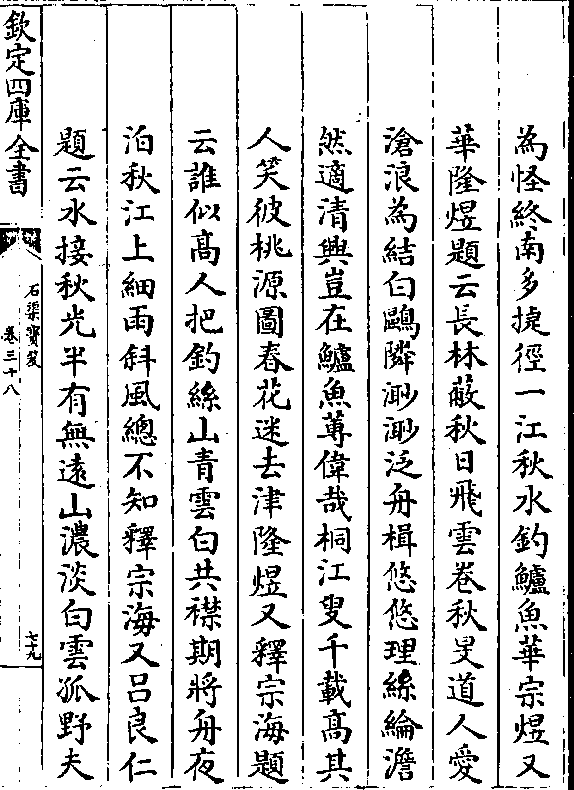 為怪終南多捷徑一江秋水釣鱸魚華宗煜又
華隆煜題云長林蔽秋日飛雲巻秋旻道人愛
滄浪為結白鷗隣渺渺泛舟楫悠悠理絲綸澹
然適清興豈在鱸魚蓴偉哉桐江叟千載髙其
人笑彼桃源圖春花迷去津隆煜又釋宗海題
云誰似髙人把釣絲山青雲白共襟期將舟夜
泊秋江上細雨斜風總不知釋宗海又吕良仁
題云水接秋光半有無逺山濃淡白雲孤野夫
欽定四庫全書
石渠寳笈
卷三十八
七十九